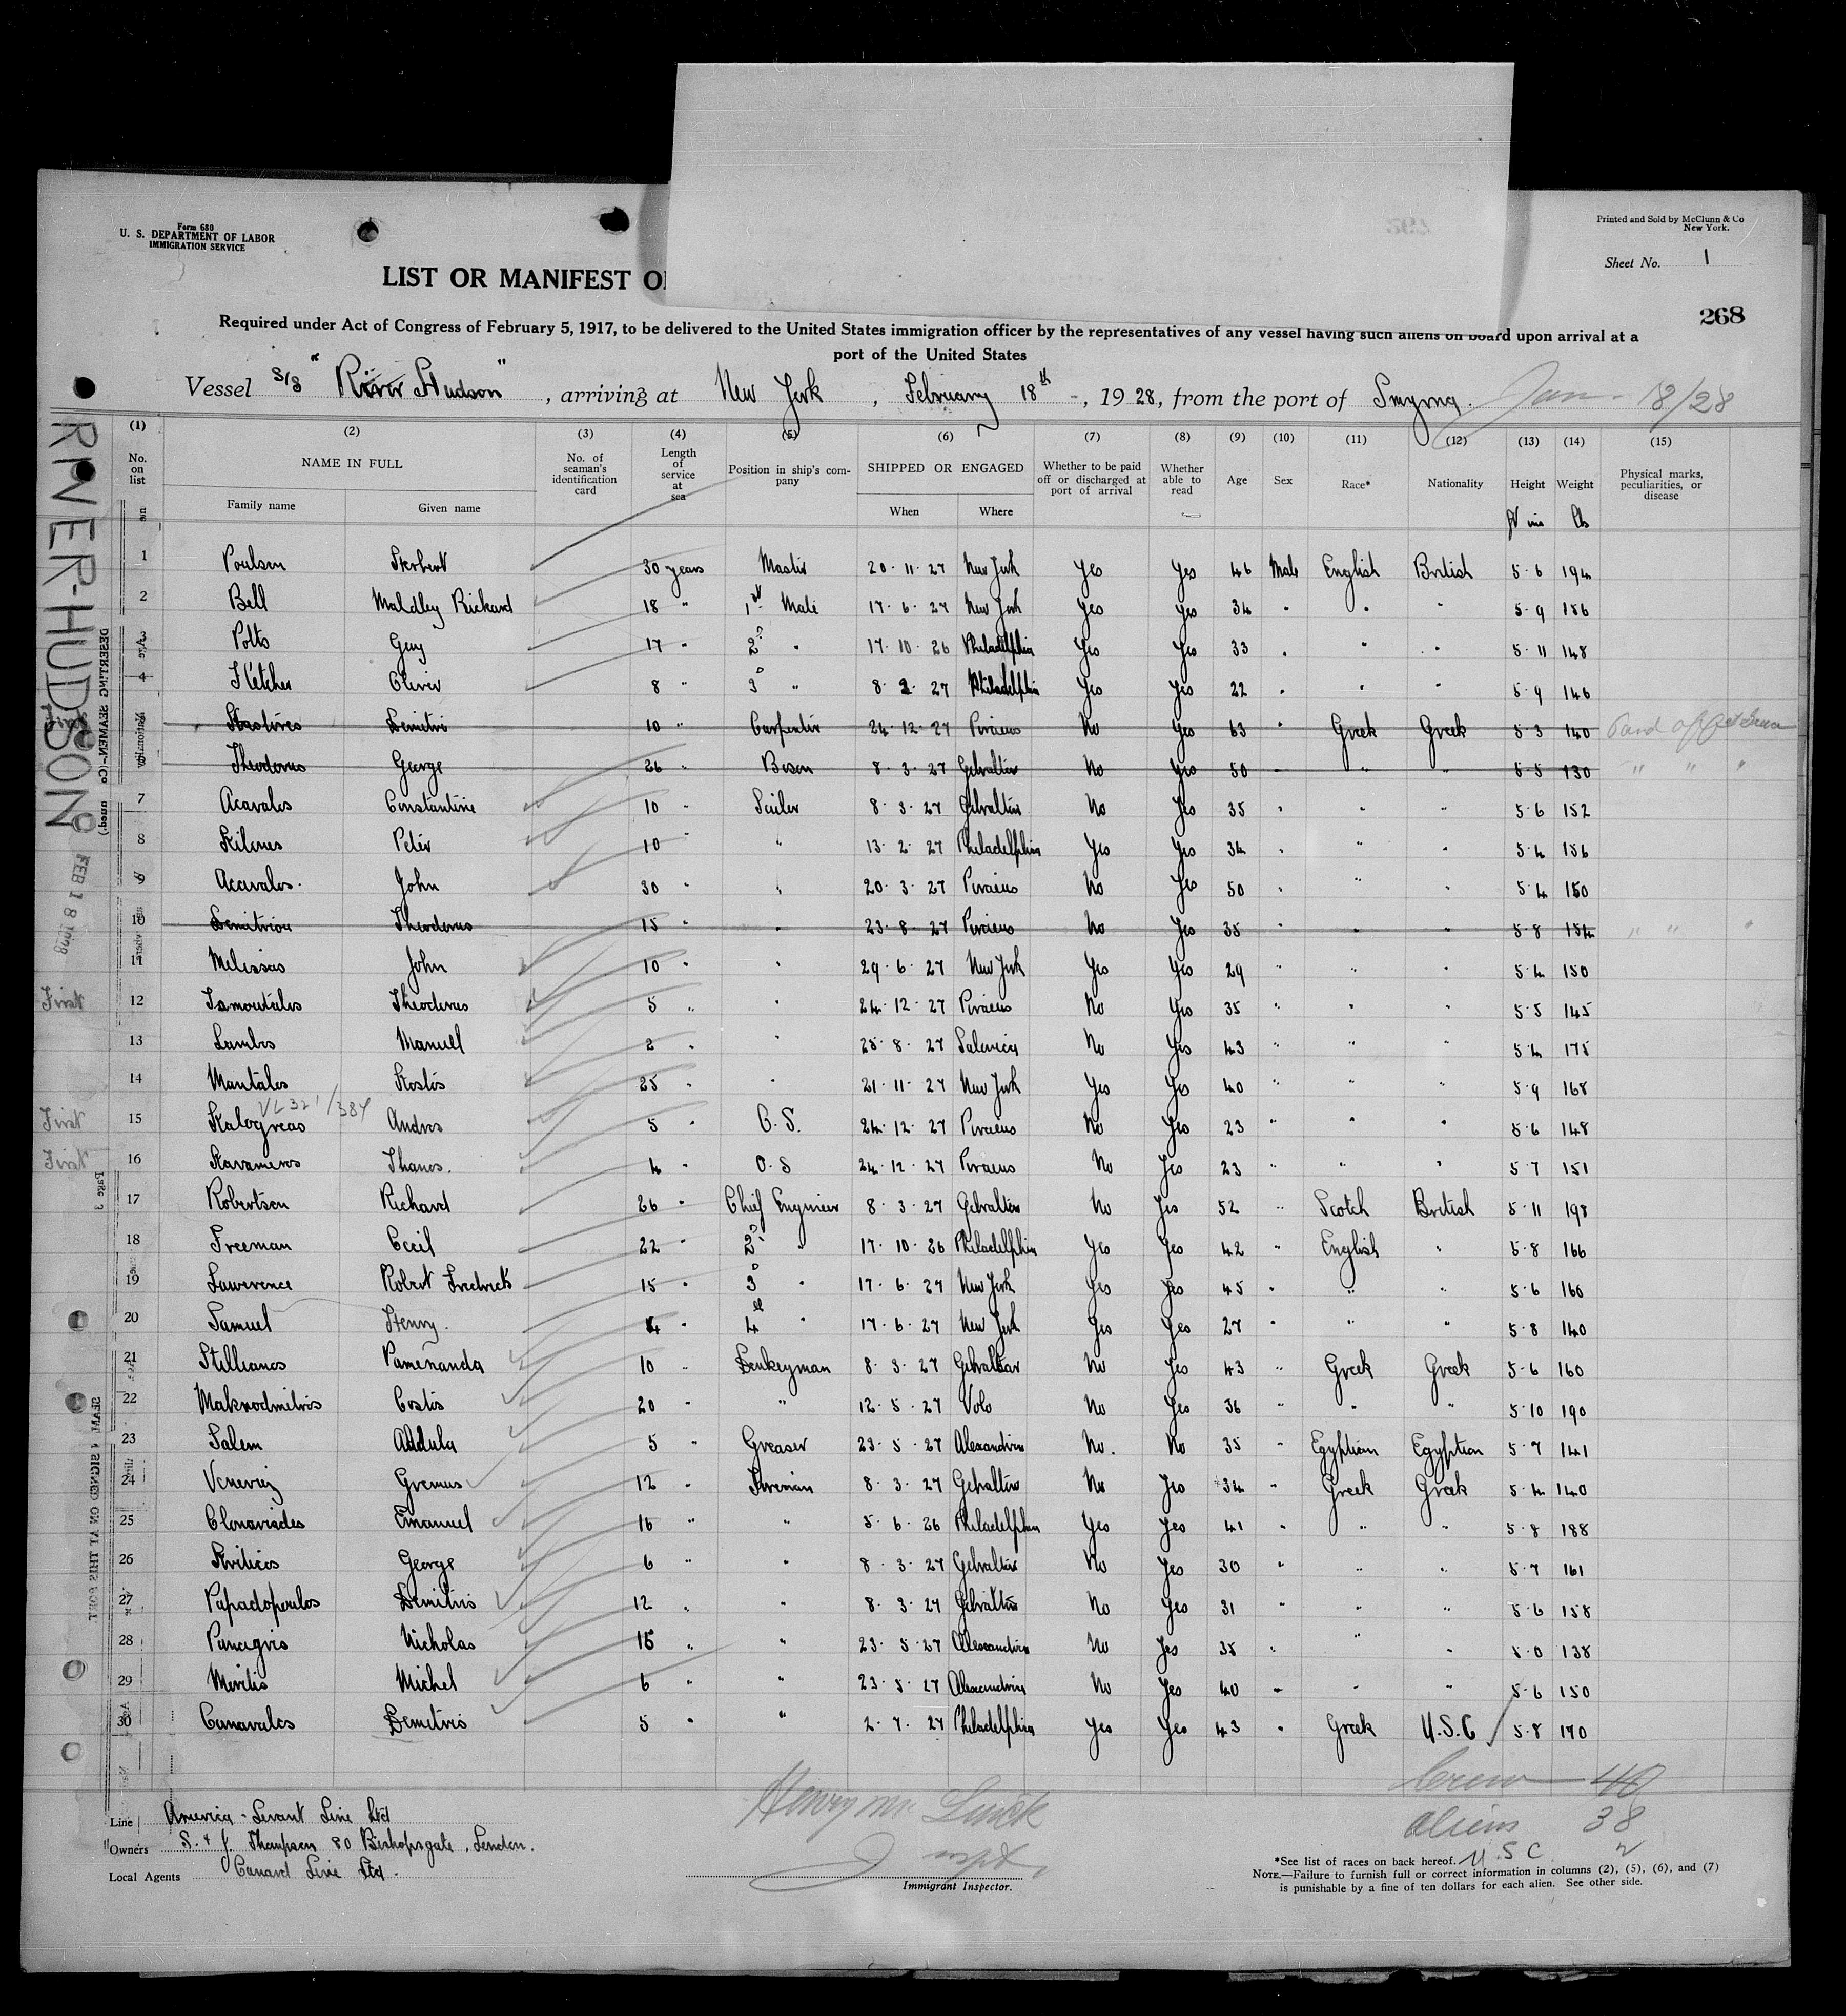 Form 680
U. S. DEPARTMENT OF LABOR
IMMIGRATION SERVICE
Printed and Sold by McClunn & Co
New York.
Sheet No. 1
LIST OR MANIFEST O
268
Required under Act of Congress of February 5, 1917, to be delivered to the United States immigration officer by the representatives of any vessel having such aliens on board upon arrival at a
port of the United States
Vessel S/S "River Hudson", arriving at New York, February 18th, 1928, from the port of Smyrna. Jan - 18/28
(1) (2) (3) (4) (5) (6) (7) (8) (9) (10) (11) (12) (13) (14) (15)
No. on list NAME IN FULL No. of seaman's identification card Length of service at sea Position in ship's company SHIPPED OR ENGAGED Whether to be paid off or discharged at port of arrival Whether able to read Age Sex Race* Nationality Height Weight Physical marks, peculiarities, or disease
Family name Given name When Where ft ins lbs
1 Poulson Herbert 30 years Master 20·11·27 New York Yes Yes 46 Male English British 5·6 194
2 Bell Richard 18 " 1st Mate 17·6·27 New York Yes Yes 34 " " " 5·9 186
3 Potts Guy 17 " 2D " 17·10·26 Philadelphia Yes Yes 33 " " " 5·11 148
4 Fletcher Oliver 8 " 3D " 8·2·27 Philadelphia Yes Yes 22 " " " 5·9 146
Demitri 10 " Carpenter 24·12·27 Piraeus No Yes 63 " Greek Greek 5·3 140
Theodorus George 26 " Bosun 8·3·27 Gibraltar No Yes 50 " " " 5·5 130 " " "
7 Acavalos Constantine 10 " Sailor 8·3·27 Gibraltar No Yes 35 " " " 5·6 152
8 Kilones Peter 10 " " 13·2·27 Philadelphia Yes Yes 34 " " " 5·4 156
9 Acavalos John 30 " " 20·3·27 Piraeus No Yes 50 " " " 5·4 150
10 Demitriou Theodorus 15 " " 23·8·27 Piraeus No Yes 35 " " " 5·8 154 " " "
11 Melissas John 10 " " 29·6·27 New York Yes Yes 29 " " " 5·4 150
First 12 Theodorus 5 " " 24·12·27 Piraeus No Yes 35 " " " 5·5 145
13 Lambos Manuel 2 " " 25·8·27 Salonica No Yes 43 " " " 5·4 175
14 Mantalos Kostis 25 " " 21·11·27 New York Yes Yes 40 " " " 5·9 168
First 15 Kalogreas Andros 5 " O.S. 24·12·27 Piraeus No Yes 23 " " " 5·6 148
First 16 Karameros Thanos. 4 " O.S 24·12·27 Piraeus No Yes 23 " " " 5·7 151
17 Robertson Richard 26 " Chief Engineer 8·3·27 Gibraltar No Yes 52 " Scotch British 5·11 198
18 Freeman Cecil 22 " 2D " 17·10·26 Philadelphia Yes Yes 42 " English " 5·8 166
19 Lawerence Robert Fredrick 15 " 3D " 17·6·27 New York Yes Yes 45 " " " 5·6 160
20 Samuel Henry. 4 " 4th " 17·6·27 New York Yes Yes 27 " " " 5·8 140
21 Stillianos Pamenanda 10 " Donkeyman 8·3·27 Gibraltar No Yes 43 " Greek Greek 5·6 160
22 Makrodmitris Costis 20 " " 12·5·27 Volo No Yes 36 " " " 5·10 190
23 Salem Abdula 5 " Greaser 23·5·27 Alexandria No. No 35 " Egyptian Egyptian 5·7 141
24 Gremus 12 " Fireman 8·3·27 Gibraltar No Yes 34 " Greek Greek 5·4 140
25 Clonariades Emanuel 16 " " 5·6·26 Philadelphia Yes Yes 41 " " " 5·8 188
26 George 6 " " 8·3·27 Gibraltar No Yes 30 " " " 5·7 161
27 Papadopoulos Demitris 12 " " 8·3·27 Gibraltar No Yes 31 " " " 5·6 158
28 Panagris Nicholas 15 " " 23·5·27 Alexandria No Yes 38 " " " 5·0 138
29 Michel 6 " " 23·5·27 Alexandria No Yes 40 " " " 5·6 150
30 Canavalos Demetris 5 " " 2·7·27 Philadelphia Yes Yes 43 " Greek U.S.C 5·8 170
RIVER-HUDSON
FEB 18 1928
Crew 40
Aliens 38
U S C 2
Line America - Levant Line Ltd
Owners S. & J. Thompson 80 Bishopsgate, London.
Local Agents Cunard Line Ltd.
Immigrant Inspector.
*See list of races on back hereof.
NOTE.—Failure to furnish full or correct information in columns (2), (5), (6), and (7)
is punishable by a fine of ten dollars for each alien. See other side.